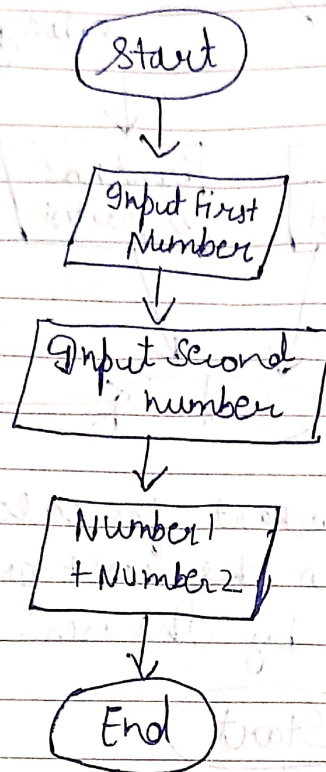 Start
Input First
Number
Input Second
number
Number1
+Number2
End